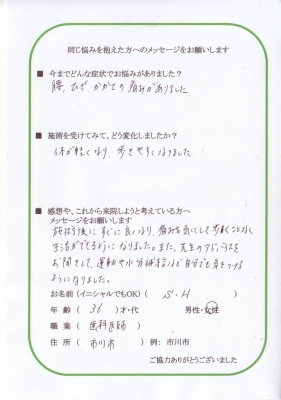 同じ悩みを抱えた方へのメッセージをお願いします
■ 今までどんな症状でお悩みがありましたか？
腰、ひざ、かかとの痛みがありました。
■ 施術を受けてみて、どう変化しましたか？
体が軽くなり、歩きやすくなりました。
■ 感想や、これから来院しようと考えている方へ
メッセージをお願いします
施術後にすぐに良くなり、痛みを気にして歩くことなく
生活ができるようになりました。また、先生のアドバイスを
お聞きして、運動や水分補給など自分でも気をつける
ようになりました。
お名前(イニシャルでもOK) ( S.H )
年 齢 ( 36 ) 才・代 男性・女性
職 業 ( 歯科医師 )
住 所 ( 市川市 ) 例: 市川市
ご協力ありがとうございました